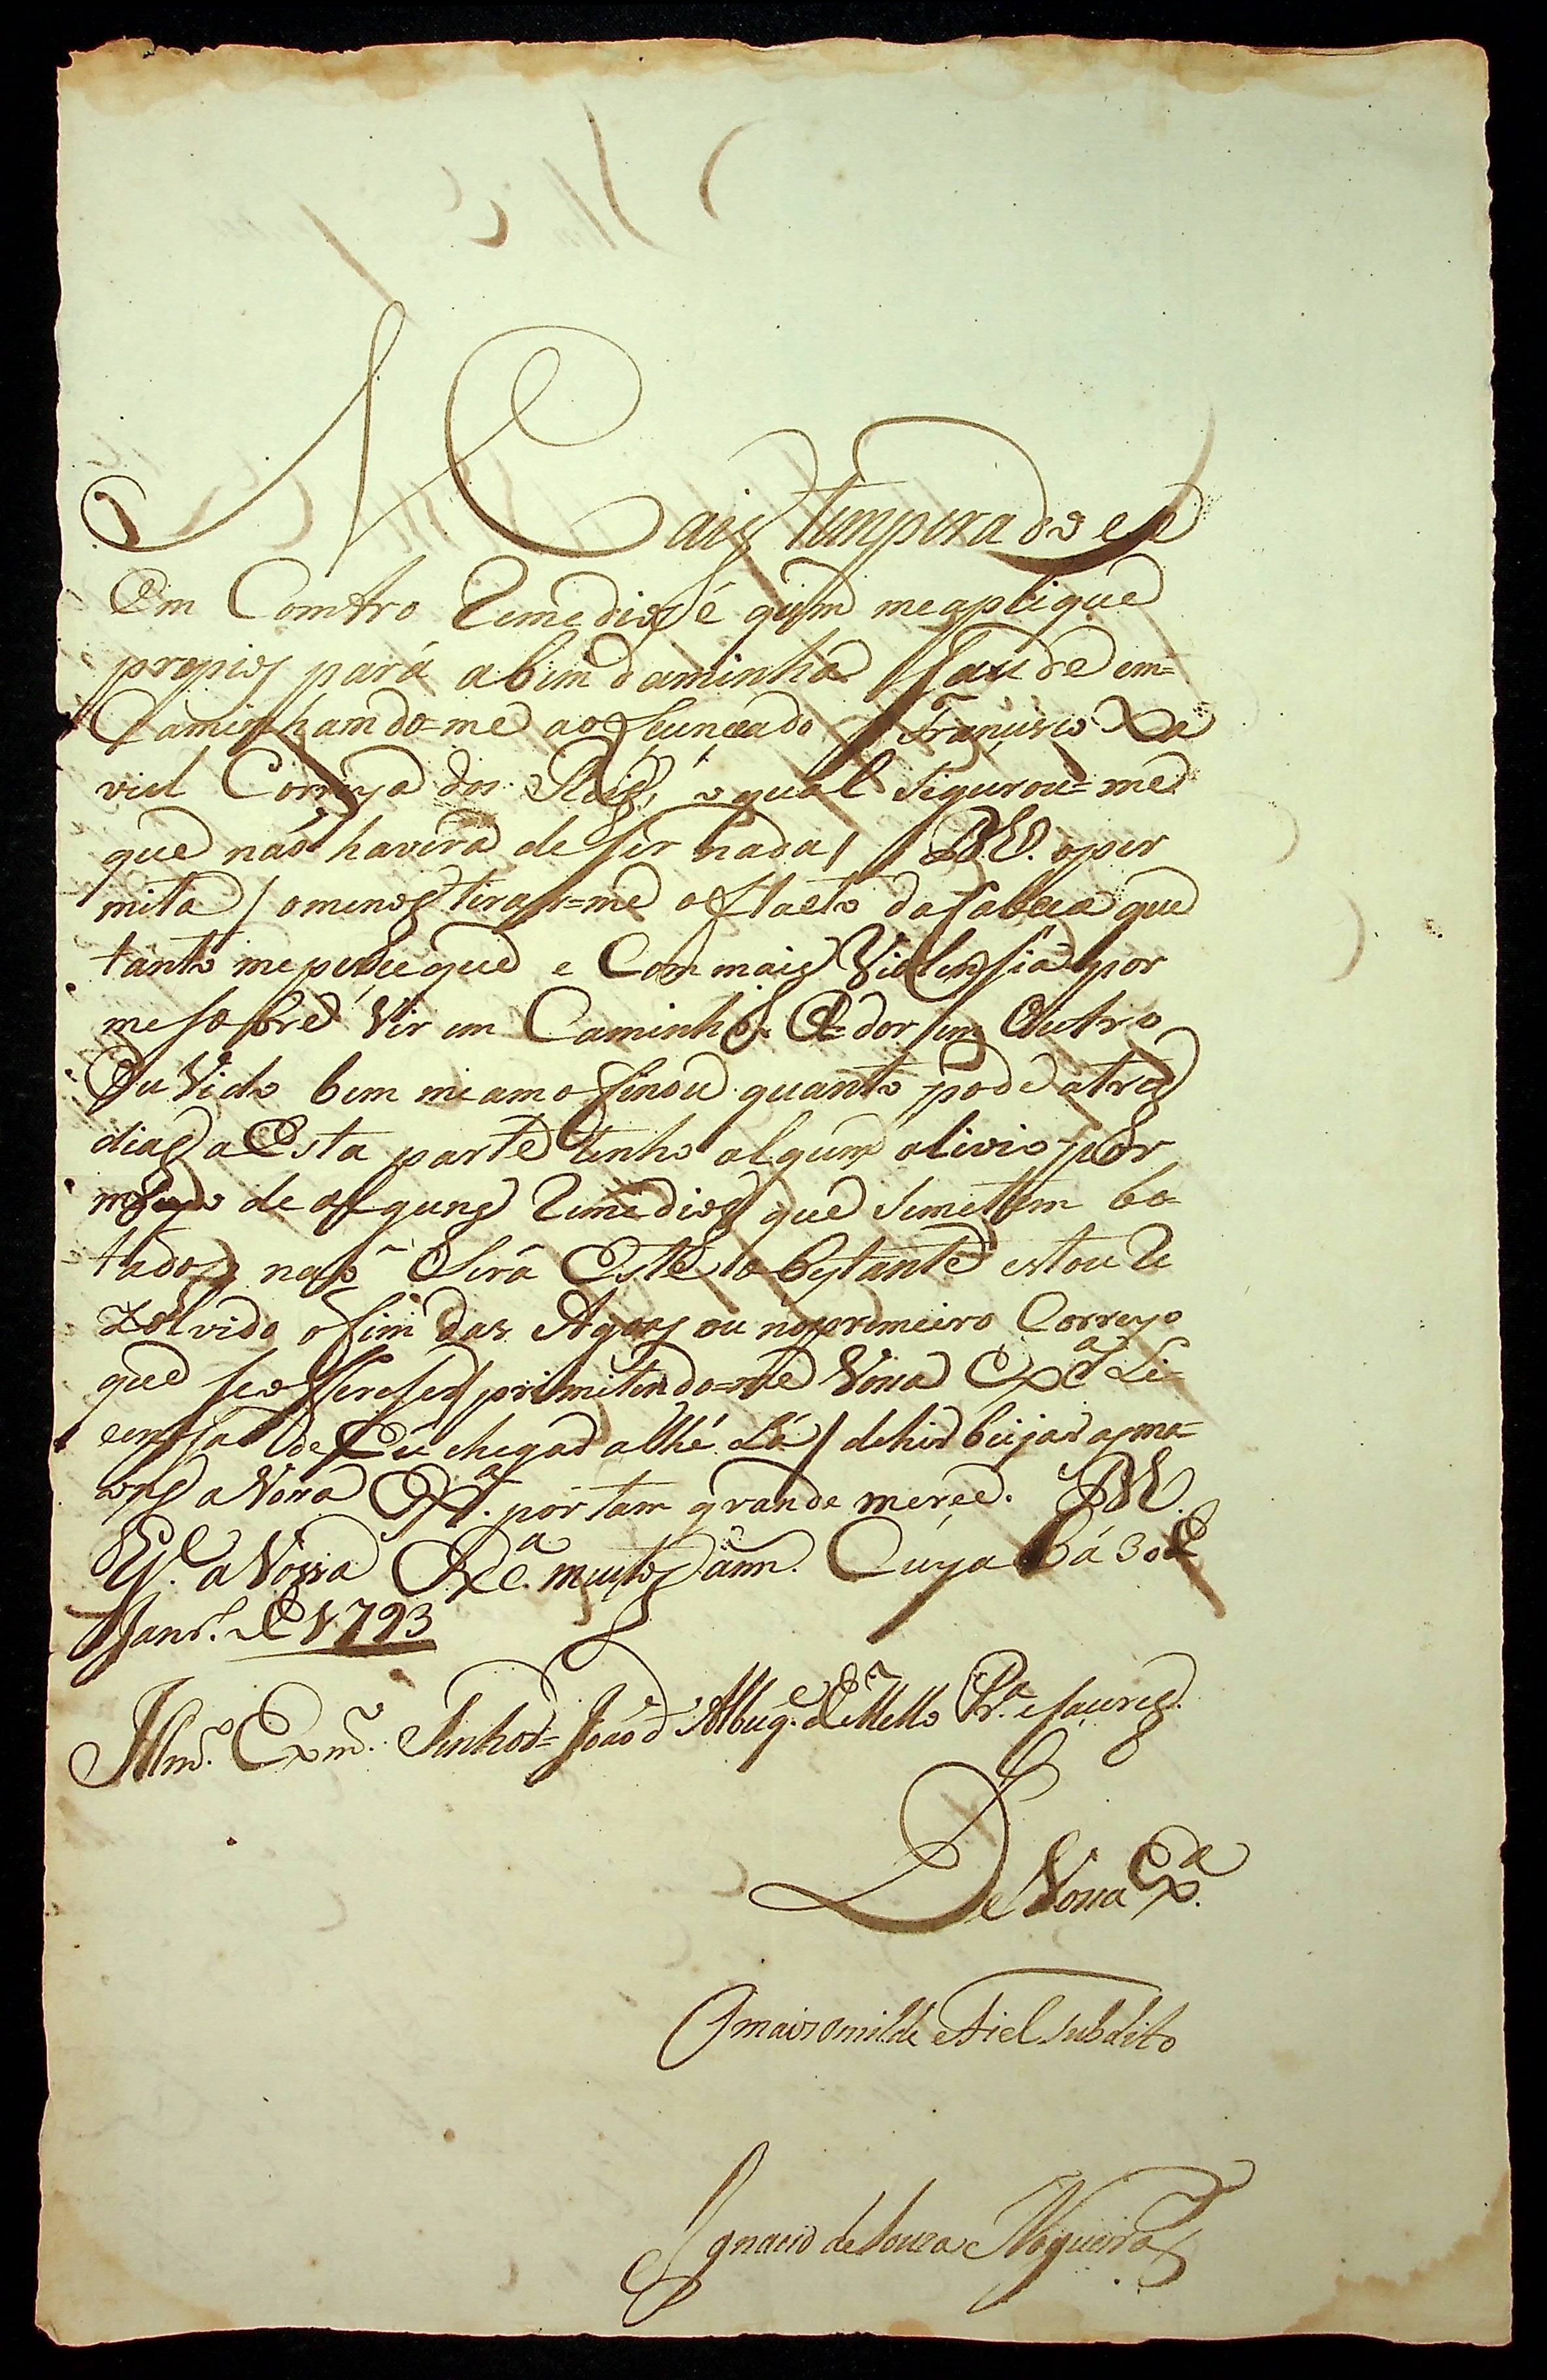 Mais temperado e e
em Comtro Remedios é quem meaplique
propios pará abem daminha Saude em=
Caminhamdo=me ao Lecunceado Francisco Xa
viel Correya dos Reis, oqual Segurou=me
que não haverá de ser nada, D.E. oper
mita / omenos tirar=me o flaeto dacabeca que
tanto meperçegue e Com mais Violensia por
mesobre Vir em Caminho. A dor em Outro
Ouvido bem meamofinou quanto pode atres
dias aesta parte tenho algum alivio por
meyo de alguns Remedios que semetem bo=
tados não Será Este obstante estou Re
zolvido ofim das Agoas ou noprimeiro Correyo
que seofferecer primitindo=me Vossa Exª Li=
cemssa de Eu chegar athé Lá / dehir beijar asma=
ons a Vossa Exª. por tam grande merce. D.E.
G.e a Vossa Exª. muitos ann. Cuyabá 30 de
Janr.º de 1793
Illmº. Exmº. Senhor= João d' Albuq.e de Mello Pr.ª e Caceres.
De Vossa Exª.
O mais omilde e Fiel Subdito
Ignacio de Souza Nogueira